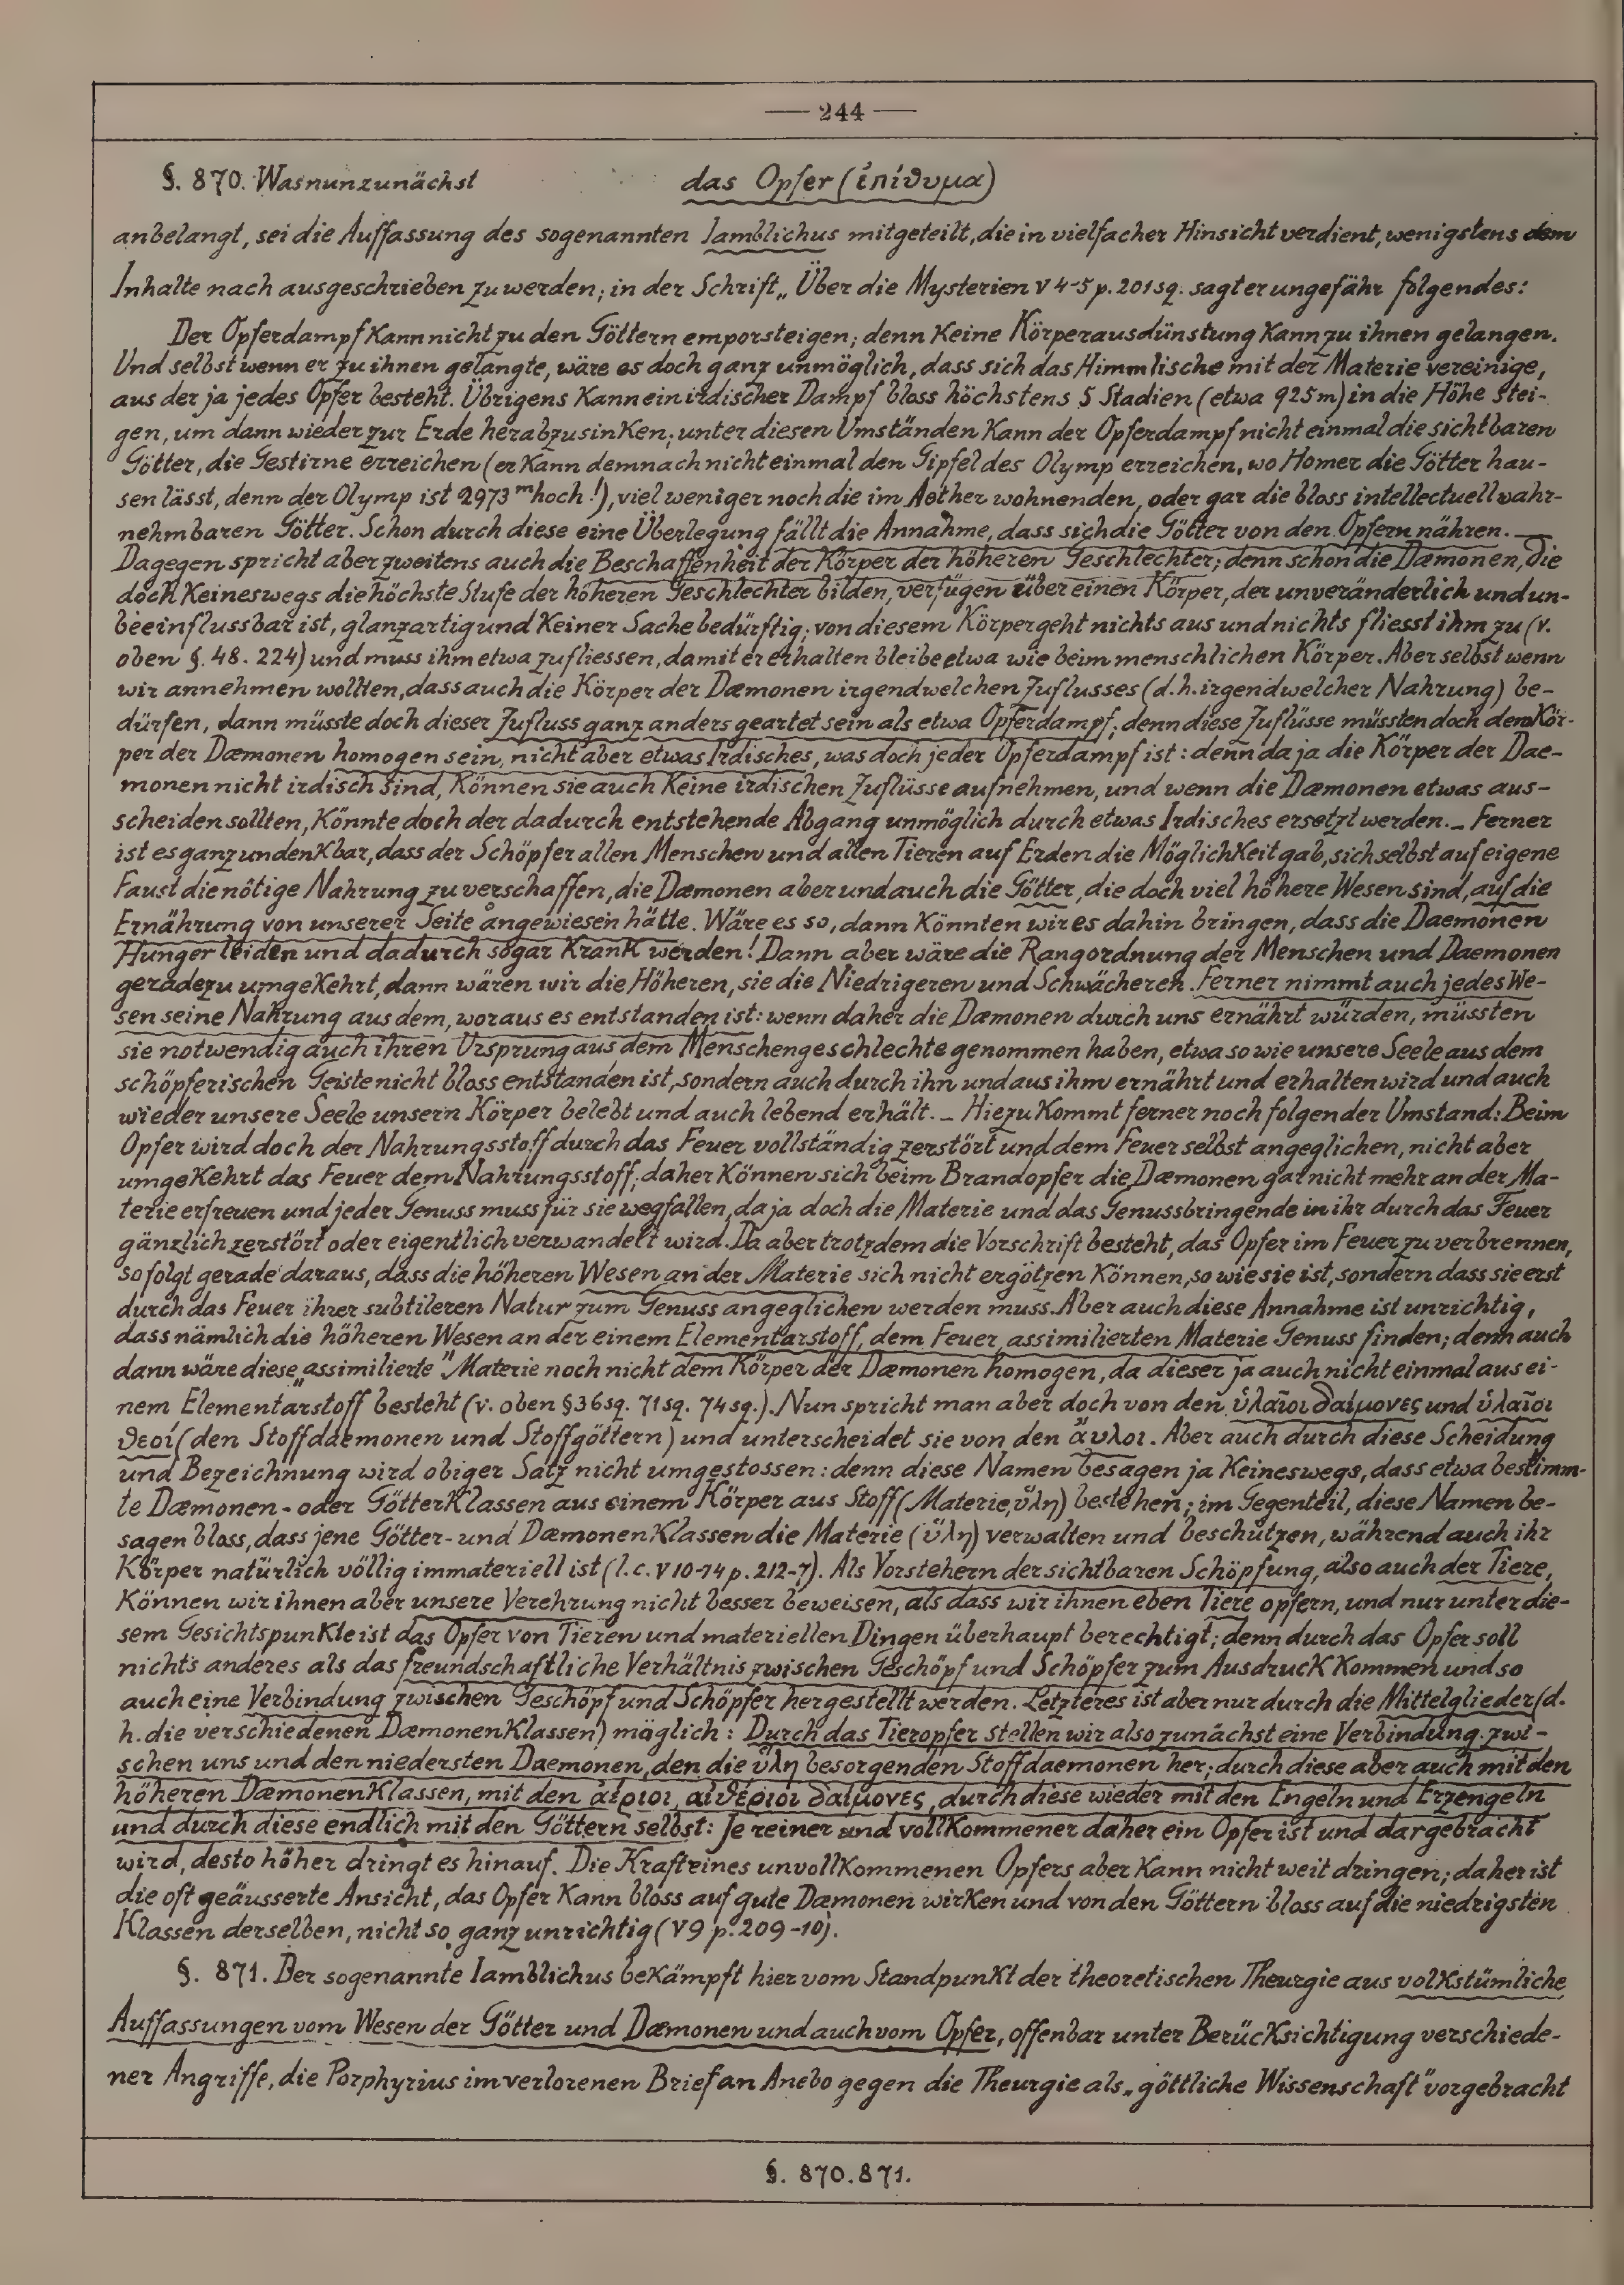 — 244 —
§. 870. Was nun zunächst das Opfer (ἐπίθυμα)
anbelangt, sei die Auffassung des sogenannten Iamblichus mitgeteilt, die in vielfacher Hinsicht verdient, wenigstens dem
Inhalte nach ausgeschrieben zu werden; in der Schrift „Über die Mysterien V 4-5 p. 201 sq. sagt er ungefähr folgendes:
Der Opferdampf kann nicht zu den Göttern emporsteigen; denn keine Körperausdünstung kann zu ihnen gelangen.
Und selbst wenn er zu ihnen gelangte, wäre es doch ganz unmöglich, dass sich das Himmlische mit der Materie vereinige,
aus der ja jedes Opfer besteht. Übrigens kann ein irdischer Dampf bloss höchstens 5 Stadien (etwa 925m) in die Höhe stei-
gen, um dann wieder zur Erde herabzusinken; unter diesen Umständen kann der Opferdampf nicht einmal die sichtbaren
Götter, die Gestirne erreichen (er kann demnach nicht einmal den Gipfel des Olymp erreichen, wo Homer die Götter hau-
sen lässt, denn der Olymp ist 2973 m hoch!), viel weniger noch die im Aether wohnenden, oder gar die bloss intellectuell wahr-
nehmbaren Götter. Schon durch diese eine Überlegung fällt die Annahme, dass sich die Götter von den Opfern nähren. —
Dagegen spricht aber zweitens auch die Beschaffenheit der Körper der höheren Geschlechter; denn schon die Dæmonen, die
doch keineswegs die höchste Stufe der höheren Geschlechter bilden, verfügen über einen Körper, der unveränderlich und un-
beeinflussbar ist, glanzartig und keiner Sache bedürftig; von diesem Körper geht nichts aus und nichts fliesst ihm zu (v.
oben §. 48. 224) und muss ihm etwa zufliessen, damit er erhalten bleibe etwa wie beim menschlichen Körper. Aber selbst wenn
wir annehmen wollten, dass auch die Körper der Dæmonen irgendwelchen Zuflusses (d.h. irgendwelcher Nahrung) be-
dürfen, dann müsste doch dieser Zufluss ganz anders geartet sein als etwa Opferdampf; denn diese Zuflüsse müssten doch dem Kör-
per der Dæmonen homogen sein, nicht aber etwas Irdisches, was doch jeder Opferdampf ist: denn da ja die Körper der Dae-
monen nicht irdisch sind, können sie auch keine irdischen Zuflüsse aufnehmen, und wenn die Dæmonen etwas aus-
scheiden sollten, könnte doch der dadurch entstehende Abgang unmöglich durch etwas Irdisches ersetzt werden. – Ferner
ist es ganz undenkbar, dass der Schöpfer allen Menschen und allen Tieren auf Erden die Möglichkeit gab, sich selbst auf eigene
Faust die nötige Nahrung zu verschaffen, die Dæmonen aber und auch die Götter, die doch viel höhere Wesen sind, auf die
Ernährung von unserer Seite angewiesen hätte. Wäre es so, dann könnten wir es dahin bringen, dass die Daemonen
Hunger leiden und dadurch sogar krank werden! Dann aber wäre die Rangordnung der Menschen und Daemonen
geradezu umgekehrt, dann wären wir die Höheren, sie die Niedrigeren und Schwächeren. Ferner nimmt auch jedes We-
sen seine Nahrung aus dem, woraus es entstanden ist: wenn daher die Dæmonen durch uns ernährt würden, müssten
sie notwendig auch ihren Ursprung aus dem Menschengeschlechte genommen haben, etwa so wie unsere Seele aus dem
schöpferischen Geiste nicht bloss entstanden ist, sondern auch durch ihn und aus ihm ernährt und erhalten wird und auch
wieder unsere Seele unsern Körper belebt und auch lebend erhält. – Hiezu kommt ferner noch folgender Umstand: Beim
Opfer wird doch der Nahrungsstoff durch das Feuer vollständig zerstört und dem Feuer selbst angeglichen, nicht aber
umgekehrt das Feuer dem Nahrungsstoff; daher können sich beim Brandopfer die Dæmonen gar nicht mehr an der Ma-
terie erfreuen und jeder Genuss muss für sie wegfallen, da ja doch die Materie und das Genussbringende in ihr durch das Feuer
gänzlich zerstört oder eigentlich verwandelt wird. Da aber trotzdem die Vorschrift besteht, das Opfer im Feuer zu verbrennen,
so folgt gerade daraus, dass die höheren Wesen an der Materie sich nicht ergötzen können, so wie sie ist, sondern dass sie erst
durch das Feuer ihrer subtileren Natur zum Genuss angeglichen werden muss. Aber auch diese Annahme ist unrichtig,
dass nämlich die höheren Wesen an der einem Elementarstoff, dem Feuer, assimilierten Materie Genuss finden; denn auch
dann wäre diese „assimilierte" Materie noch nicht dem Körper der Dæmonen homogen, da dieser ja auch nicht einmal aus ei-
nem Elementarstoff besteht (v. oben § 36 sq. 71 sq. 74 sq.). Nun spricht man aber doch von den ὑλαῖοι δαίμονες und ὑλαῖοι
θεοί (den Stoffdaemonen und Stoffgöttern) und unterscheidet sie von den ἄυλοι. Aber auch durch diese Scheidung
und Bezeichnung wird obiger Satz nicht umgestossen: denn diese Namen besagen ja keineswegs, dass etwa bestimm-
te Dæmonen- oder Götterklassen aus einem Körper aus Stoff (Materie, ὕλη) bestehen; im Gegenteil, diese Namen be-
sagen bloss, dass jene Götter- und Dæmonenklassen die Materie (ὕλη) verwalten und beschützen, während auch ihr
Körper natürlich völlig immateriell ist (l. c. V 10-14 p. 212-7). Als Vorstehern der sichtbaren Schöpfung, also auch der Tiere,
können wir ihnen aber unsere Verehrung nicht besser beweisen, als dass wir ihnen eben Tiere opfern, und nur unter die-
sem Gesichtspunkte ist das Opfer von Tieren und materiellen Dingen überhaupt berechtigt; denn durch das Opfer soll
nichts anderes als das freundschaftliche Verhältnis zwischen Geschöpf und Schöpfer zum Ausdruck kommen und so
auch eine Verbindung zwischen Geschöpf und Schöpfer hergestellt werden. Letzteres ist aber nur durch die Mittelglieder (d.
h. die verschiedenen Dæmonenklassen) möglich: Durch das Tieropfer stellen wir also zunächst eine Verbindung zwi-
schen uns und den niedersten Daemonen, den die ὕλη besorgenden Stoffdaemonen her; durch diese aber auch mit den
höheren Dæmonenklassen, mit den ἀέριοι, αἰθέριοι δαίμονες, durch diese wieder mit den Engeln und Erzengeln
und durch diese endlich mit den Göttern selbst: Je reiner und vollkommener daher ein Opfer ist und dargebracht
wird, desto höher dringt es hinauf. Die Kraft eines unvollkommenen Opfers aber kann nicht weit dringen; daher ist
die oft geäusserte Ansicht, das Opfer kann bloss auf gute Dæmonen wirken und von den Göttern bloss auf die niedrigsten
Klassen derselben, nicht so ganz unrichtig (V 9 p. 209-10).
§. 871. Der sogenannte Iamblichus bekämpft hier vom Standpunkt der theoretischen Theurgie aus volkstümliche
Auffassungen vom Wesen der Götter und Dæmonen und auch vom Opfer, offenbar unter Berücksichtigung verschiede-
ner Angriffe, die Porphyrius im verlorenen Brief an Anebo gegen die Theurgie als „göttliche Wissenschaft" vorgebracht
§. 870. 871.